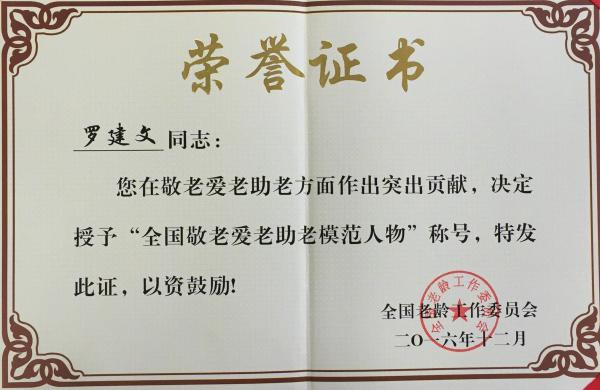 荣誉证书
罗建文同志：
您在敬老爱老助老方面作出突出贡献，决定
授予“全国敬老爱老助老模范人物”称号，特发
此证，以资鼓励！
全国老龄工作委员会
二〇一六年十二月
全国老龄工作委员会